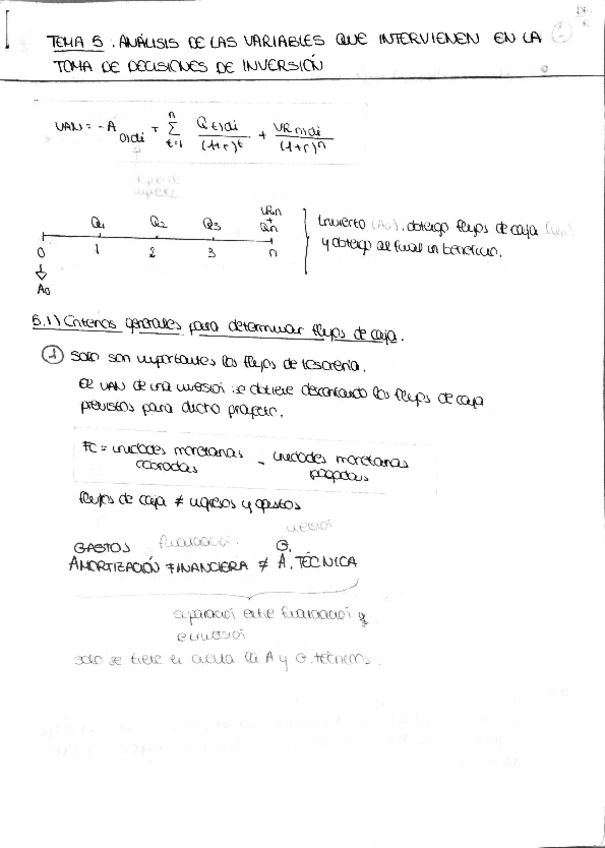 TEMA 5: ANÁLISIS DE LAS VARIABLES QUE INTERVIENEN EN LA
TOMA DE DECISIONES DE INVERSIÓN
VAN = -A + Σ Q t)di / (1+r)^t + VR n)di / (1+r)^n
n
t=1
Q1 Q2 Q3 VRn + Qn
0 1 2 3 n
A0
Invierto (A0), obtengo flujos de caja
y obtengo al final un beneficio.
5.1) Criterios generales para determinar flujos de caja.
1 Solo son importantes los flujos de tesorería.
El VAN de una inversión se obtiene descontando los flujos de caja
previstos para dicho proyecto.
FC = unidades monetarias cobradas - unidades monetarias pagadas
flujos de caja ≠ ingresos y gastos
GASTOS financiación. G. inversión
AMORTIZACIÓN FINANCIERA ≠ A. TÉCNICA
separación entre financiación y
inversión
solo se tiene en cuenta la A y G. técnicos.